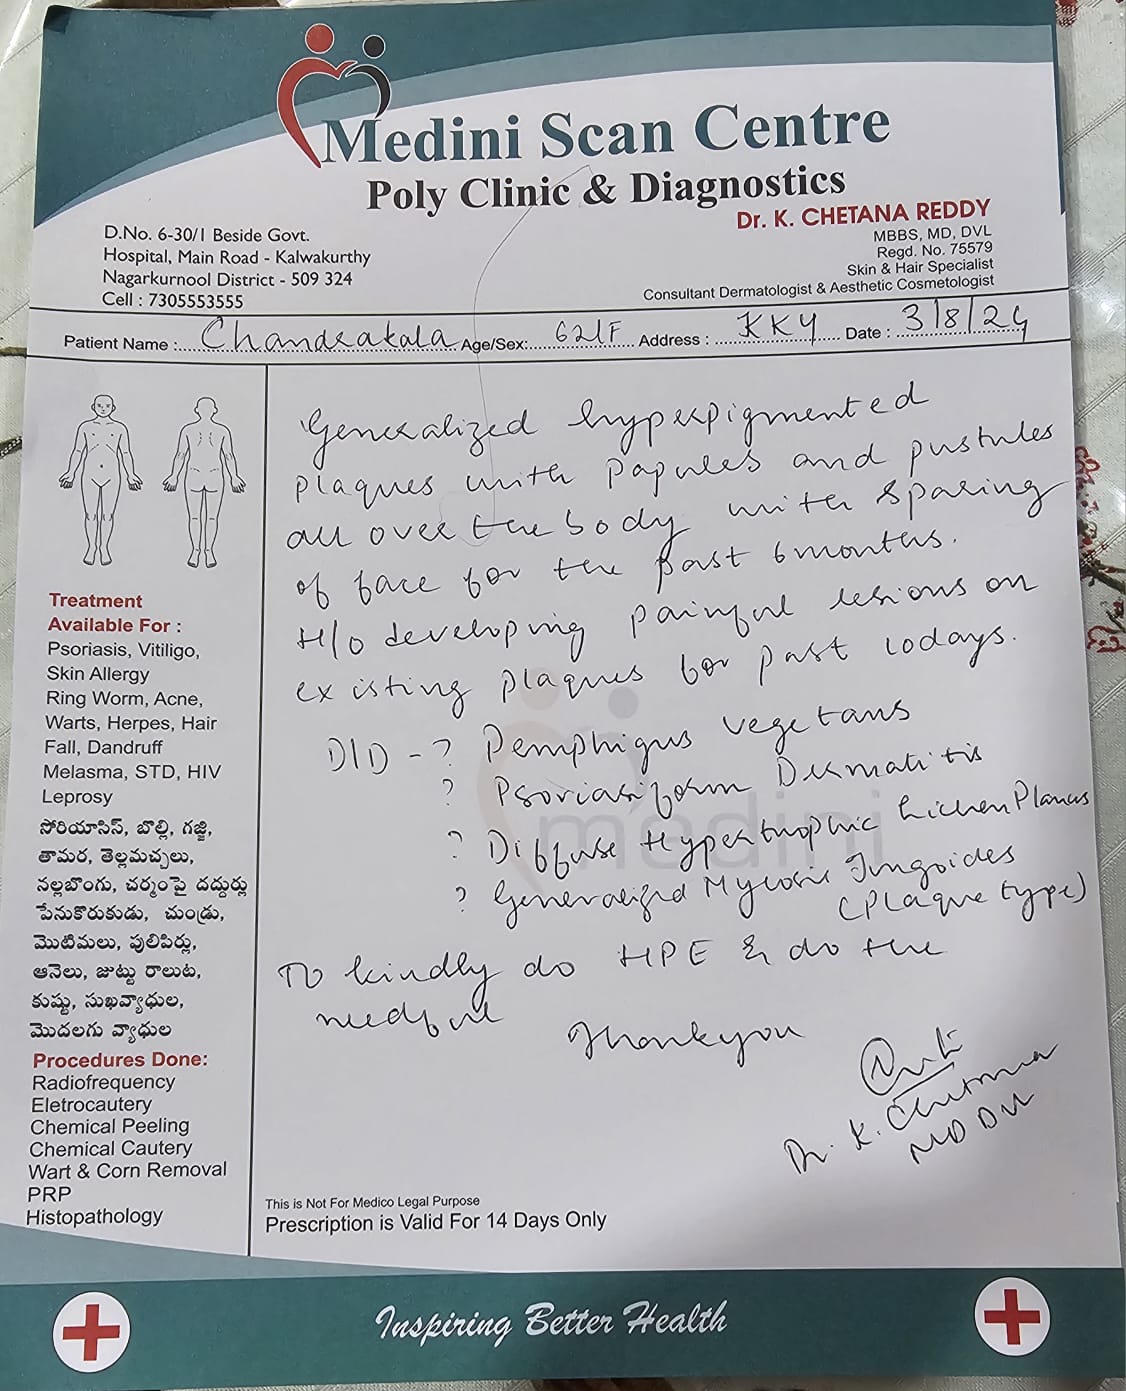 Medini Scan Centre
Poly Clinic & Diagnostics
D.No. 6-30/1 Beside Govt.
Hospital, Main Road - Kalwakurthy
Nagarkurnool District - 509 324
Cell : 7305553555
Dr. K. CHETANA REDDY
MBBS, MD, DVL
Regd. No. 75579
Skin & Hair Specialist
Consultant Dermatologist & Aesthetic Cosmetologist
Patient Name : Chandrakala Age/Sex: 62/F Address : KKY Date : 3/8/24
Generalized hyperpigmented
plaques with papules and pustules
all over the body with sparing
of face for the past 6 months.
H/o developing painful lesions on
existing plaques for past 10days.
D/D - ? Pemphigus vegetans
? Psoriasiform Dermatitis
? Diffuse Hypertrophic Lichen Planus
? Generalized Mycosis Fungoides
(Plaque type)
To kindly do HPE & do the
needful
Thankyou
Dr. K. Chetana
MD DVL
Treatment
Available For :
Psoriasis, Vitiligo,
Skin Allergy
Ring Worm, Acne,
Warts, Herpes, Hair
Fall, Dandruff
Melasma, STD, HIV
Leprosy
సోరియాసిస్, బొల్లి, గజ్జి,
తామర, తెల్లమచ్చలు,
నల్లబొంగు, చర్మంపై దద్దుర్లు
పేనుకొరుకుడు, చుండ్రు,
మొటిమలు, పులిపిర్లు,
ఆనెలు, జుట్టు రాలుట,
కుష్టు, సుఖవ్యాధుల,
మొదలగు వ్యాధుల
Procedures Done:
Radiofrequency
Eletrocautery
Chemical Peeling
Chemical Cautery
Wart & Corn Removal
PRP
Histopathology
medini
This is Not For Medico Legal Purpose
Prescription is Valid For 14 Days Only
Inspiring Better Health